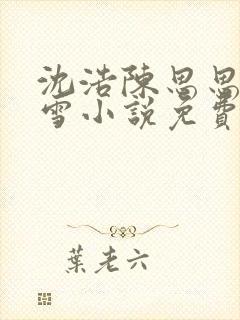 沈浩陳思思
雪小說免費
葉老六